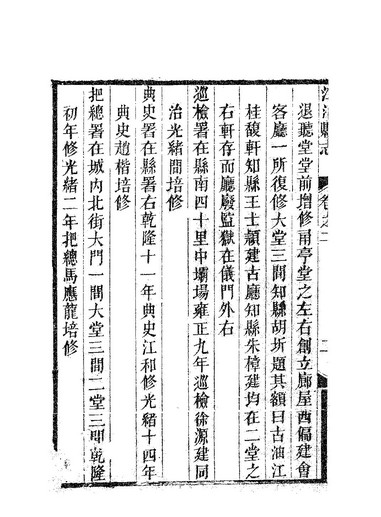 江油縣志 卷之二 二
退聽堂堂前增修甬亭堂之左右創立廊屋西偏建會
客廳一所復修大堂三間知縣胡圻題其額曰古油江
桂馥軒知縣王士顓建古廳知縣朱樟建均在二堂之
右軒存而廳廢監獄在儀門外右
巡檢署在縣南四十里中壩場雍正九年巡檢徐源建同
治光緒間培修
典史署在縣署右乾隆十一年典史江和修光緒十四年
典史趙楷培修
把總署在城內北街大門一間大堂三間二堂三間乾隆
初年修光緒二年把總馬應龍培修